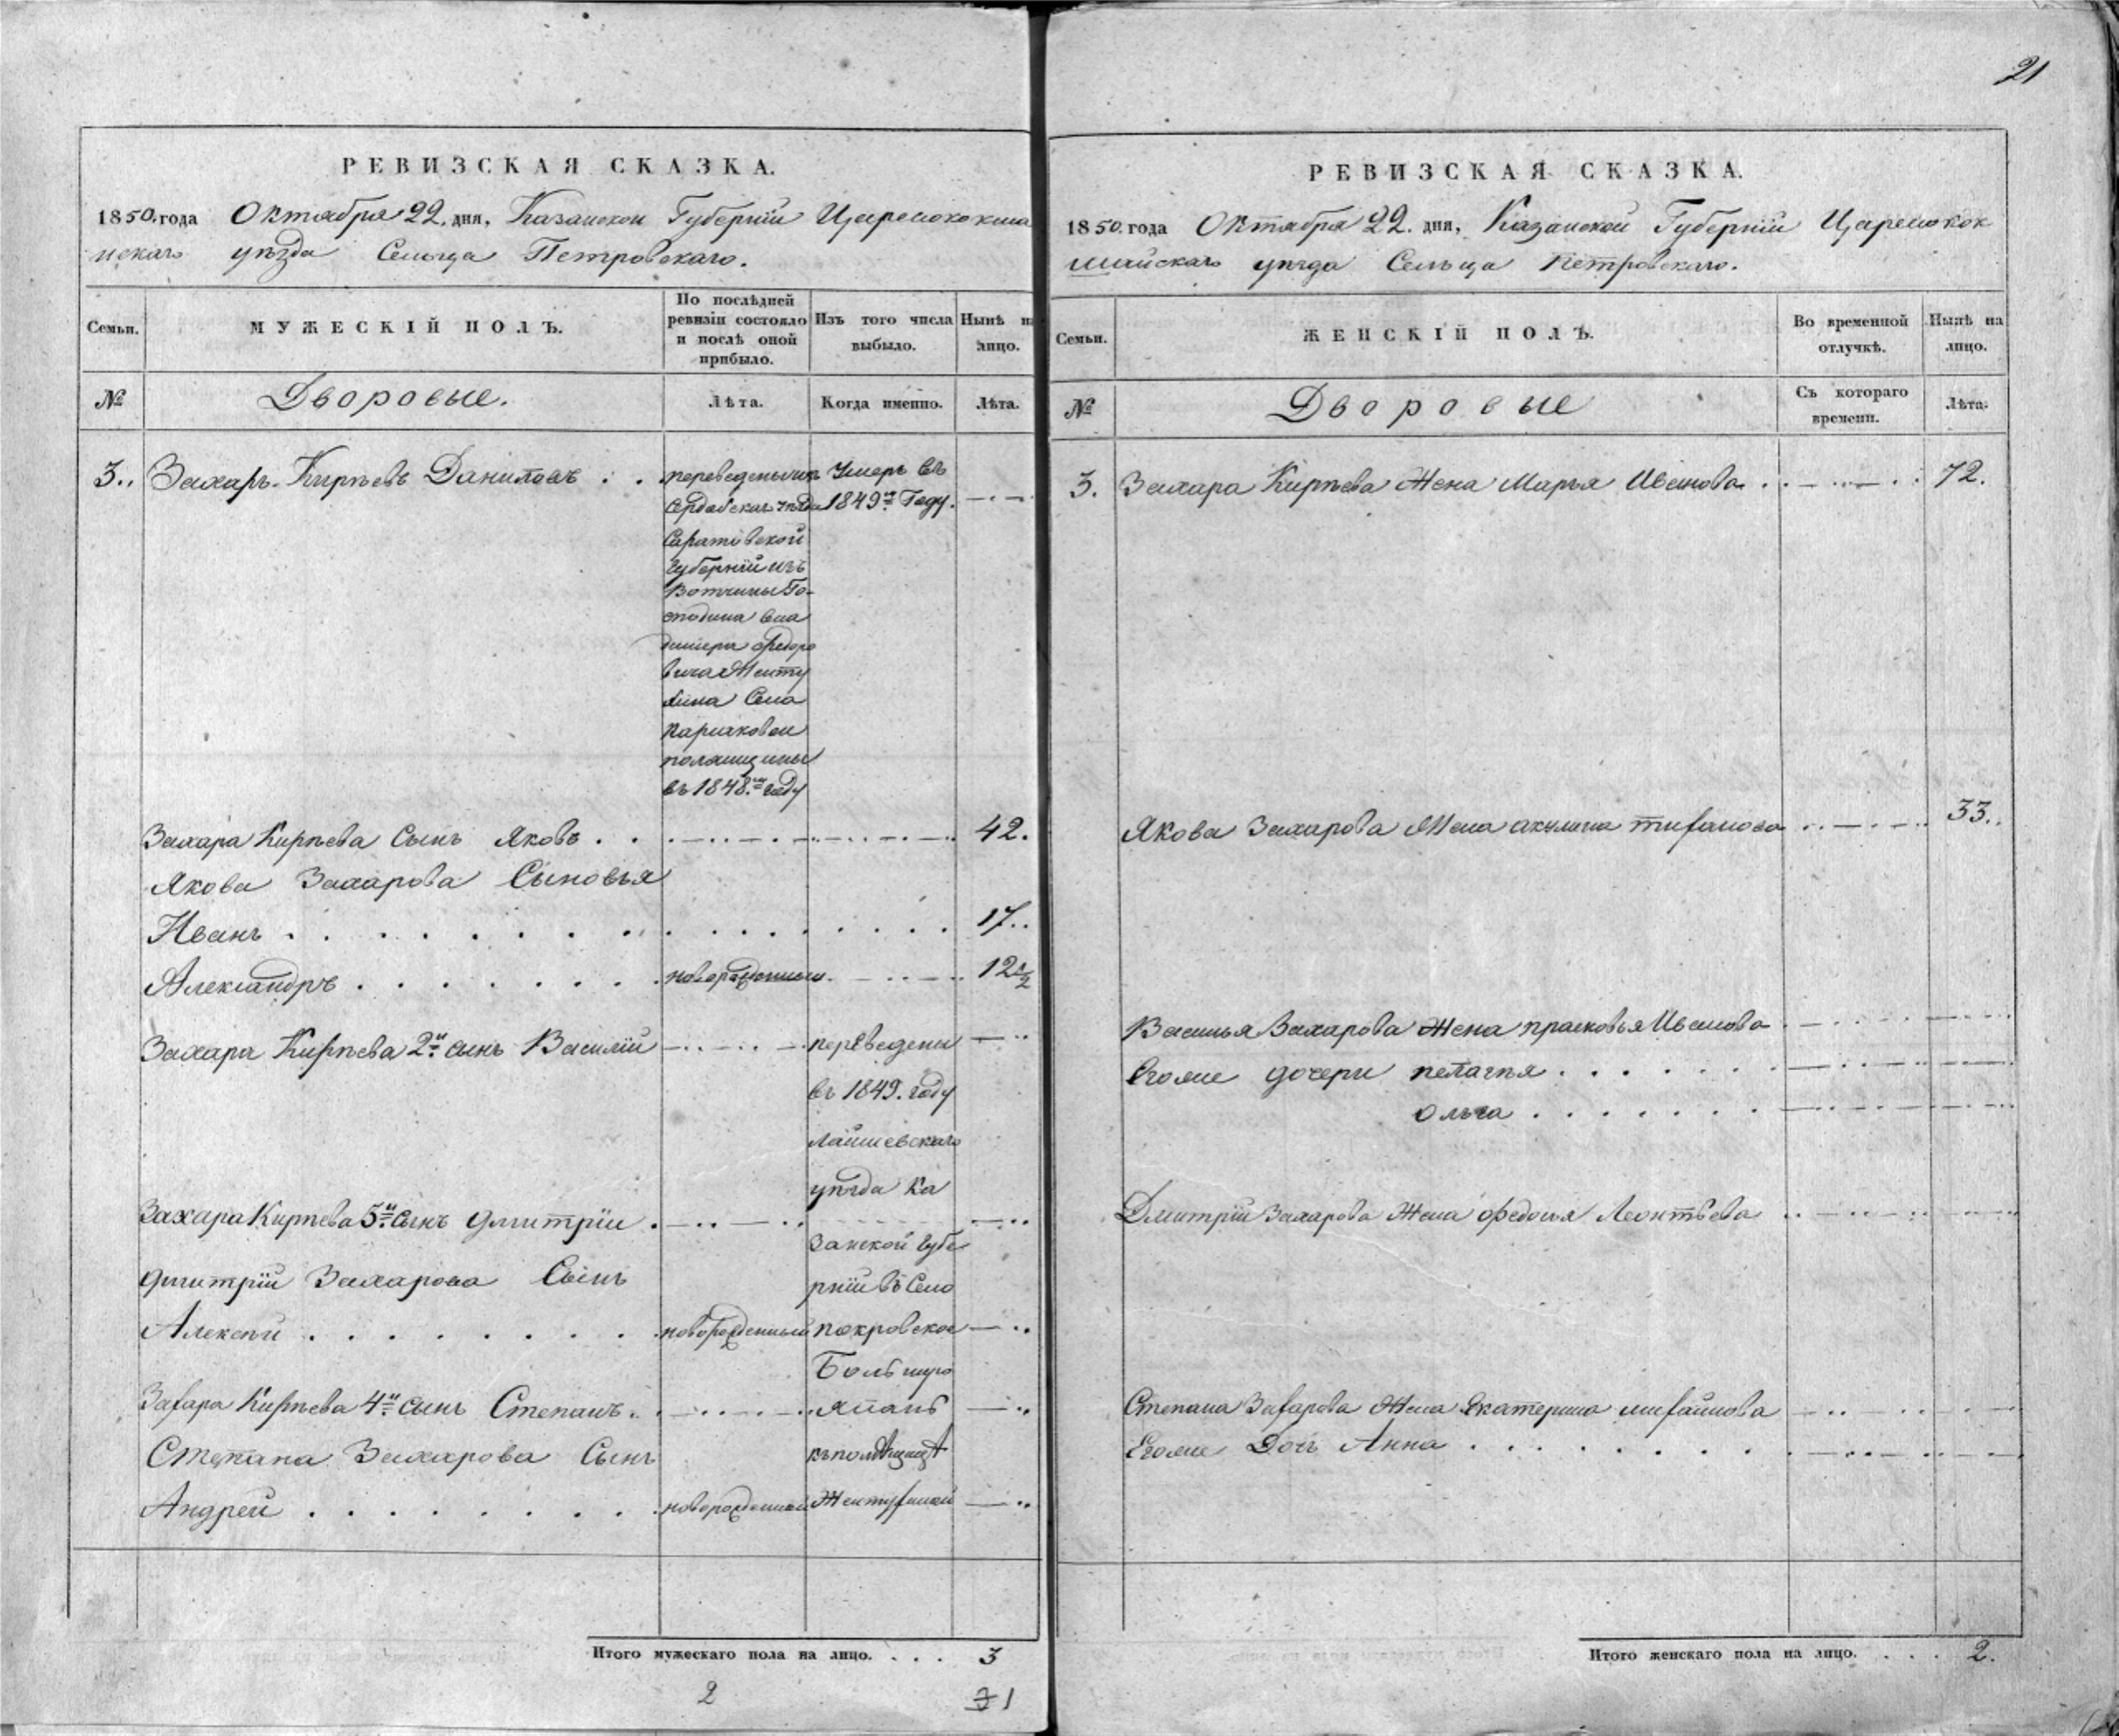 21
РЕВИЗСКАЯ СКАЗКА.
1850. года Октября 22. дня, Казанской Губернїи Царевококша
йскаго уѣзда Сельца Петровскаго.
Семьи.
МУЖЕСКІЙ ПОЛЪ.
По послѣдней ревизіи состояло и послѣ оной прибыло.
Изъ того числа выбыло.
Нынѣ на лицо.
№
Дворовые.
Лѣта.
Когда именно.
Лѣта.
3.. Захаръ Кирѣевъ Даниловъ
переведенъ
Сердобскаго уѣзда
Саратовской
Губернїи изъ
Вотчины Го-
сподина Вла
димера Федоро
вича Желту
хина Села
поланщины
въ 1848.мъ году
Умеръ въ
1849мъ Году.
Захара Кирѣева Сынъ Яковъ . . 42.
Якова Захарова Сыновья
Иванъ . . . . . . . . 17..
Александръ . . . . . . . новорожденный 12 1/2
Захара Кирѣева 2й сынъ Василїй
переведены
въ 1849. году
Лаишевскаго
уѣзда Ка
Захара Кирѣева 3й Сынъ Дмитрїи .
занской Губе
Дмитрїи Захарова Сынъ
рнїи въ Село
Алексѣй . . . . . . . . новорожденный покровское
Большую
Захара Кирѣева 4й сынъ Степанъ.
Степана Захарова Сынъ
Андрей . . . . . . . . новорожденный Желтухиной
Итого мужескаго пола на лицо. . . . 3
2
1
РЕВИЗСКАЯ СКАЗКА.
1850. года Октября 22. дня, Казанской Губернїи Царевокок
шайскаго уѣзда Сельца Петровскаго.
Семьи.
ЖЕНСКІЙ ПОЛЪ.
Во временной отлучкѣ.
Нынѣ на лицо.
№
Дворовые
Съ котораго времени.
Лѣта.
3. Захара Кирѣева Жена Марья Иванова . 72.
Якова Захарова Жена акулина 33..
Василья Захарова Жена прасковья Иванова
Егоже дочери пелагѣя . . . . . .
Ольга . . . . . . .
Дмитрїи Захарова Жена Федосья Леонтьева
Степана Захарова Жена Екатерина михайлова
Егоже Дочь Анна . . . . . . . .
Итого женскаго пола на лицо. . . . 2.